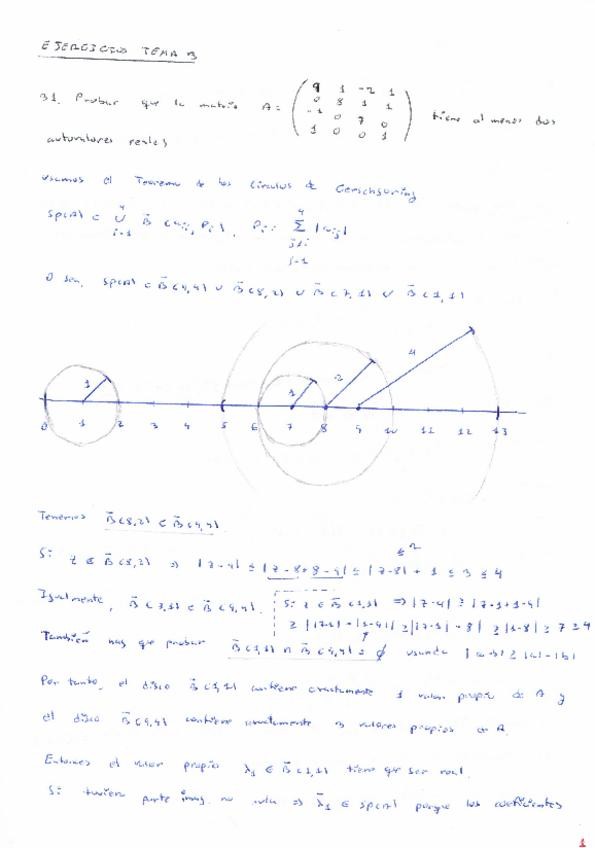 EJERCICIOS TEMA 3
31. Probar que la matriz A = ( 9 1 -2 1
0 8 1 1
-1 0 7 0
1 0 0 1 ) tiene al menos dos
autovalores reales
Usamos el Teorema de los Círculos de
Sp(A) ⊂ ∪ B̄ (aii, Pi), Pi = Σ |aij|
O sea, Sp(A) ⊂ B̄(9,4) ∪ B̄(8,2) ∪ B̄(7,1) ∪ B̄(1,1)
1 1 2 4
0 1 2 3 4 5 6 7 8 9 10 11 12 13
Tenemos B̄(8,2) ⊂ B̄(9,4)
≤ 2
Si z ∈ B̄(8,2) ⇒ |z-9| ≤ |z-8+8-9| ≤ |z-8| + 1 ≤ 3 ≤ 4
Igualmente, B̄(7,1) ⊂ B̄(9,4). Si z ∈ B̄(1,1) ⇒ |z-9| ≥ |z-1+1-9|
≥ ||z-1| - |1-9|| ≥ ||z-1| - 8| ≥ |1-8| ≥ 7 ≥ 4
También hay que probar B̄(1,1) ∩ B̄(9,4) = ∅ usando |a-b| ≥ |a|-|b|
Por tanto, el disco B̄(1,1) contiene exactamente 1 valor propio de A y
el disco B̄(9,4) contiene exactamente 3 valores propios de A.
Entonces el valor propio λ1 ∈ B̄(1,1) tiene que ser real.
Si tuviera parte imag. no nula ⇒ λ̄1 ∈ Sp(A) porque los coeficientes
1